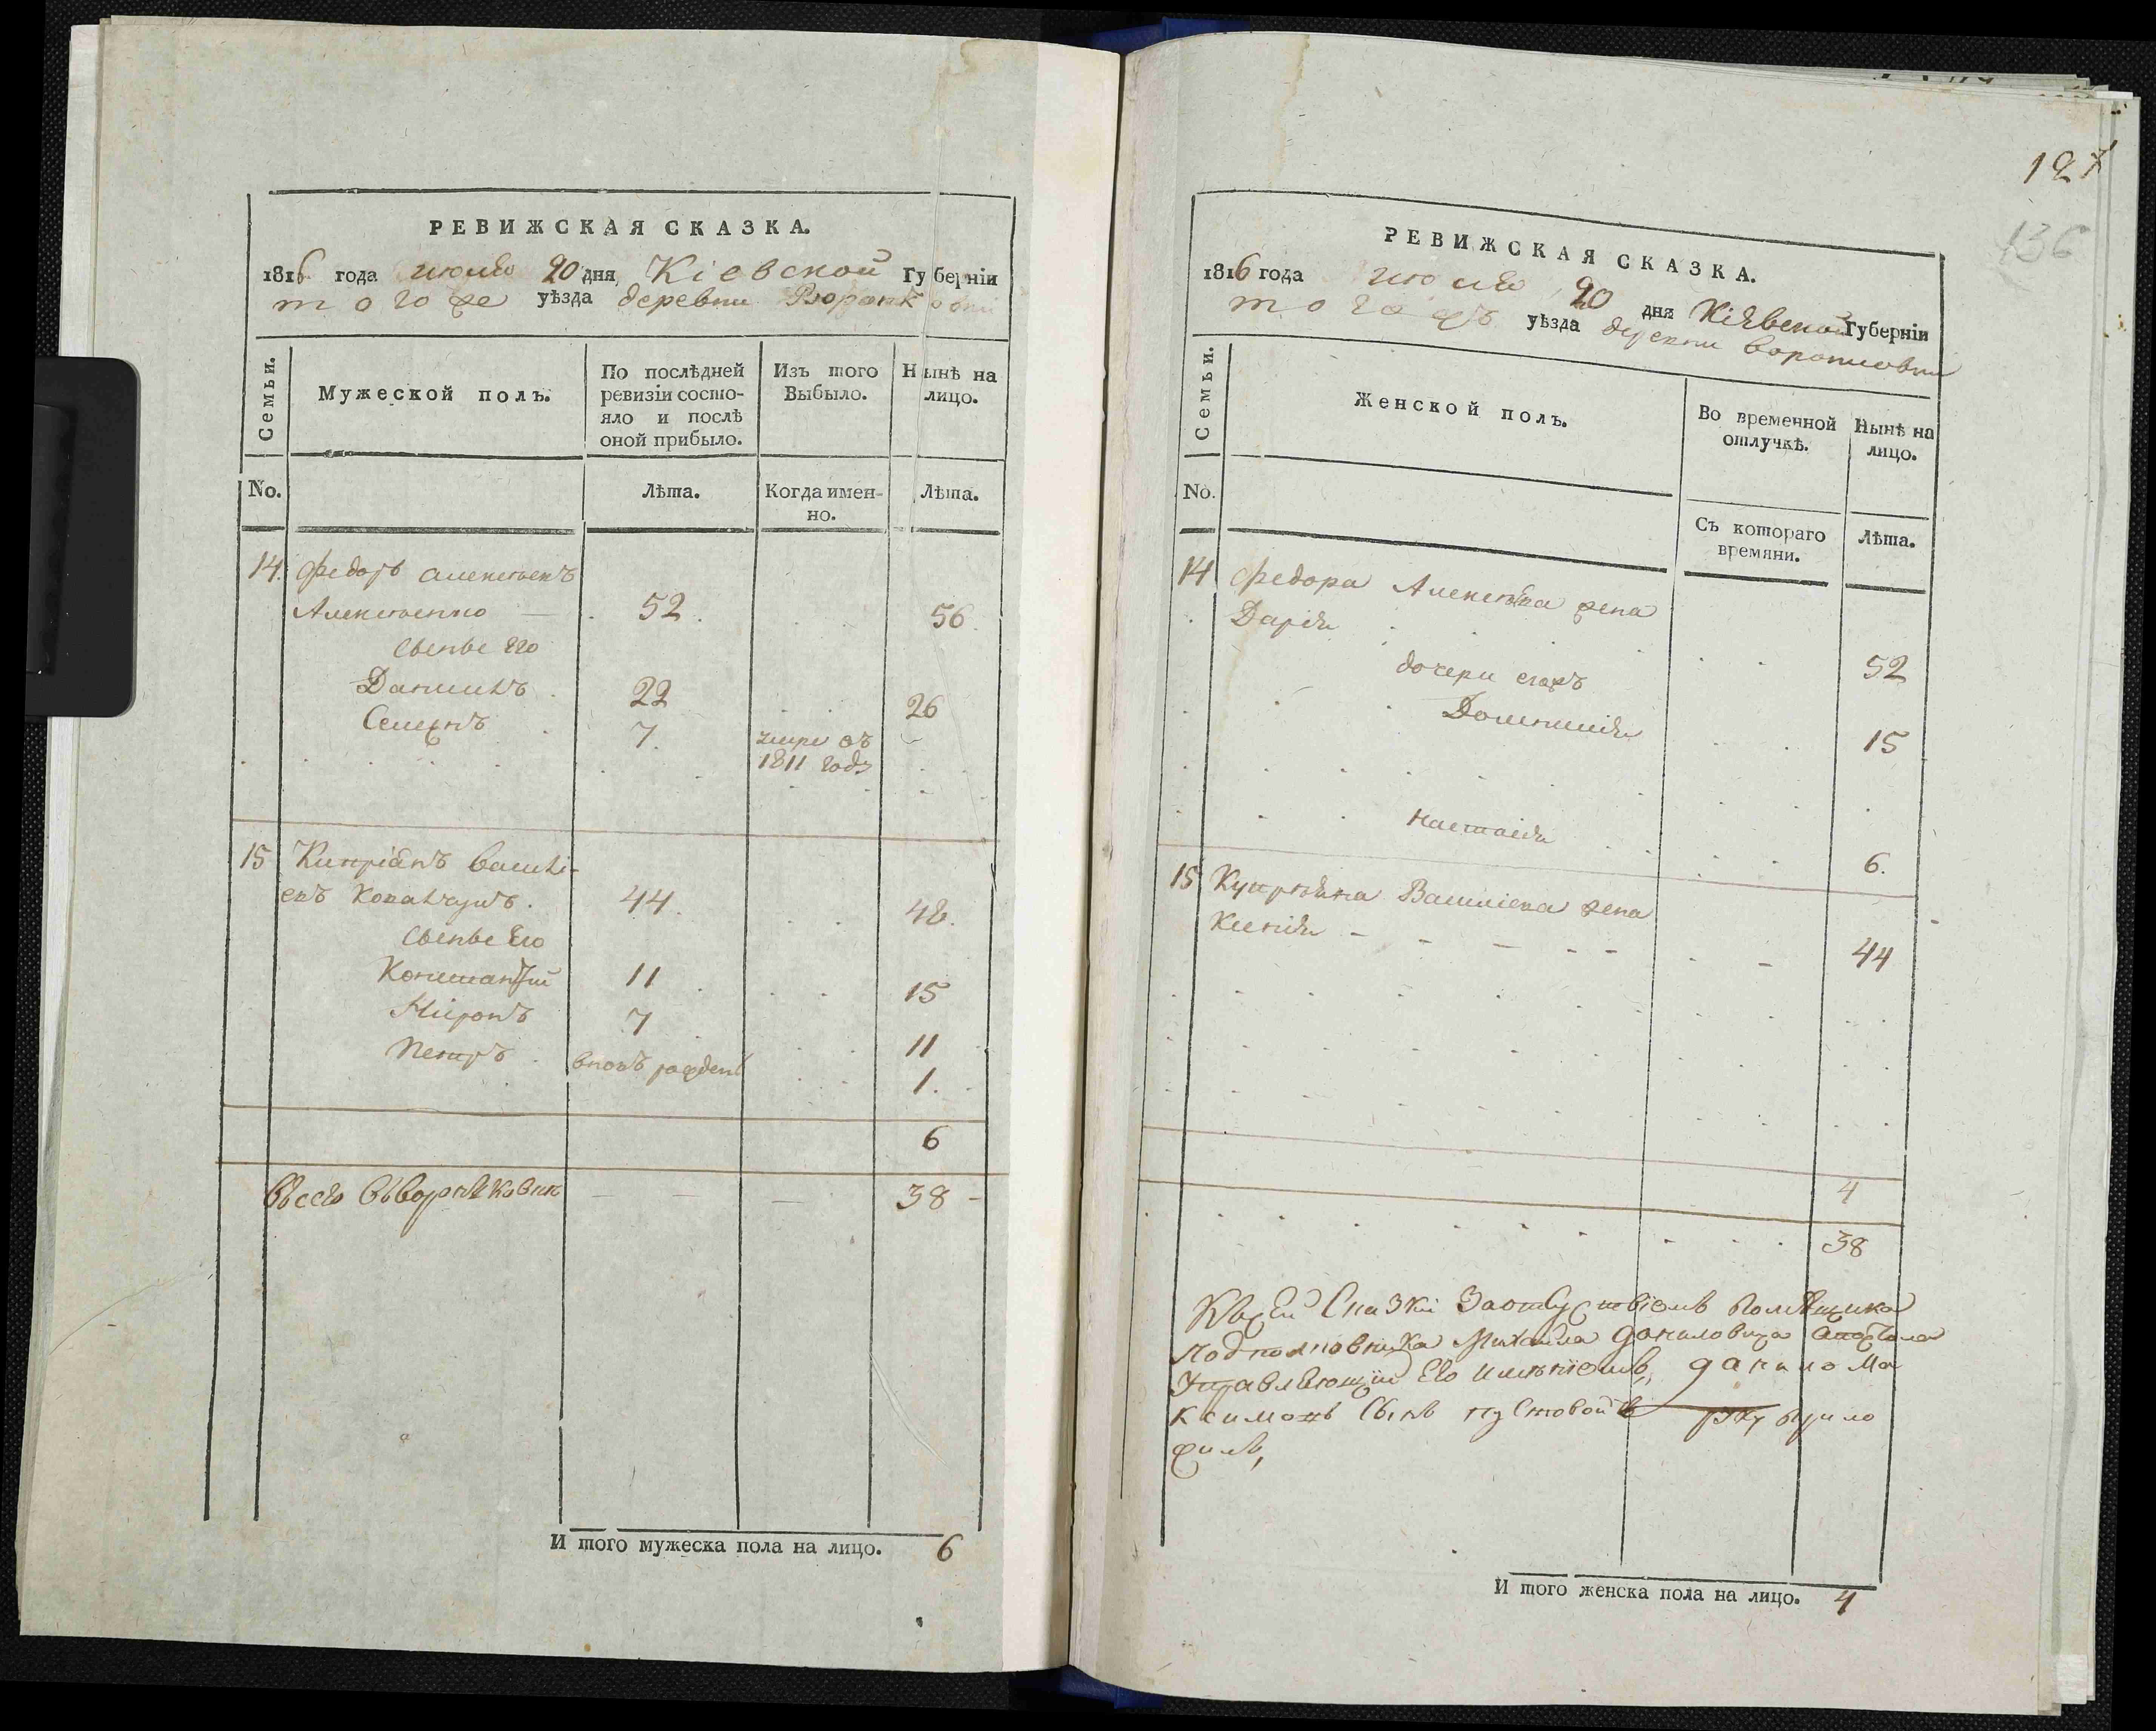 РЕВИЖСКАЯ СКАЗКА.
1816 года июля 20 дня, Кіевской Губерніи
того же уѣзда деревни
Семьи.
Мужеской полъ.
По послѣдней ревизіи состо-
яло и послѣ
оной прибыло.
Изъ того
Выбыло.
Нынѣ на
лицо.
No.
Лѣта.
Когда имен-
но.
Лѣта.
14. Федоръ Алексѣевъ
Алексѣенко 52. 56.
Сынве его
Данилъ 22 26
Семенъ 7. умре въ
1811 году
15 Кипріанъ Василі-
евъ 44. 48.
Сынве Его
Константій 11 15
Миронъ 7 11
Петръ вновь рожденъ 1.
6
38
И того мужеска пола на лицо. 6
127
136
РЕВИЖСКАЯ СКАЗКА.
1816 года июля 20 дня Кіевской Губерніи
того жъ уѣзда деревни
Семьи.
Женской полъ.
Во временной
отлучкѣ.
Нынѣ на
лицо.
No.
Съ котораго
времяни.
Лѣта.
14 Федора Алексѣева жена
Дарія 52
дочери
15
Настасія 6.
15 Василіева жена
Ксенія 44
4
38
Къ Сей Сказки Заотсуствіемъ Помѣщика
Подполковника Михайла Даниловича Апостола
Управляющій Его имѣніемъ, Данило Ма
ксимовъ Сынъ Пустовойтъ руку прило
жилъ,
И того женска пола на лицо. 4